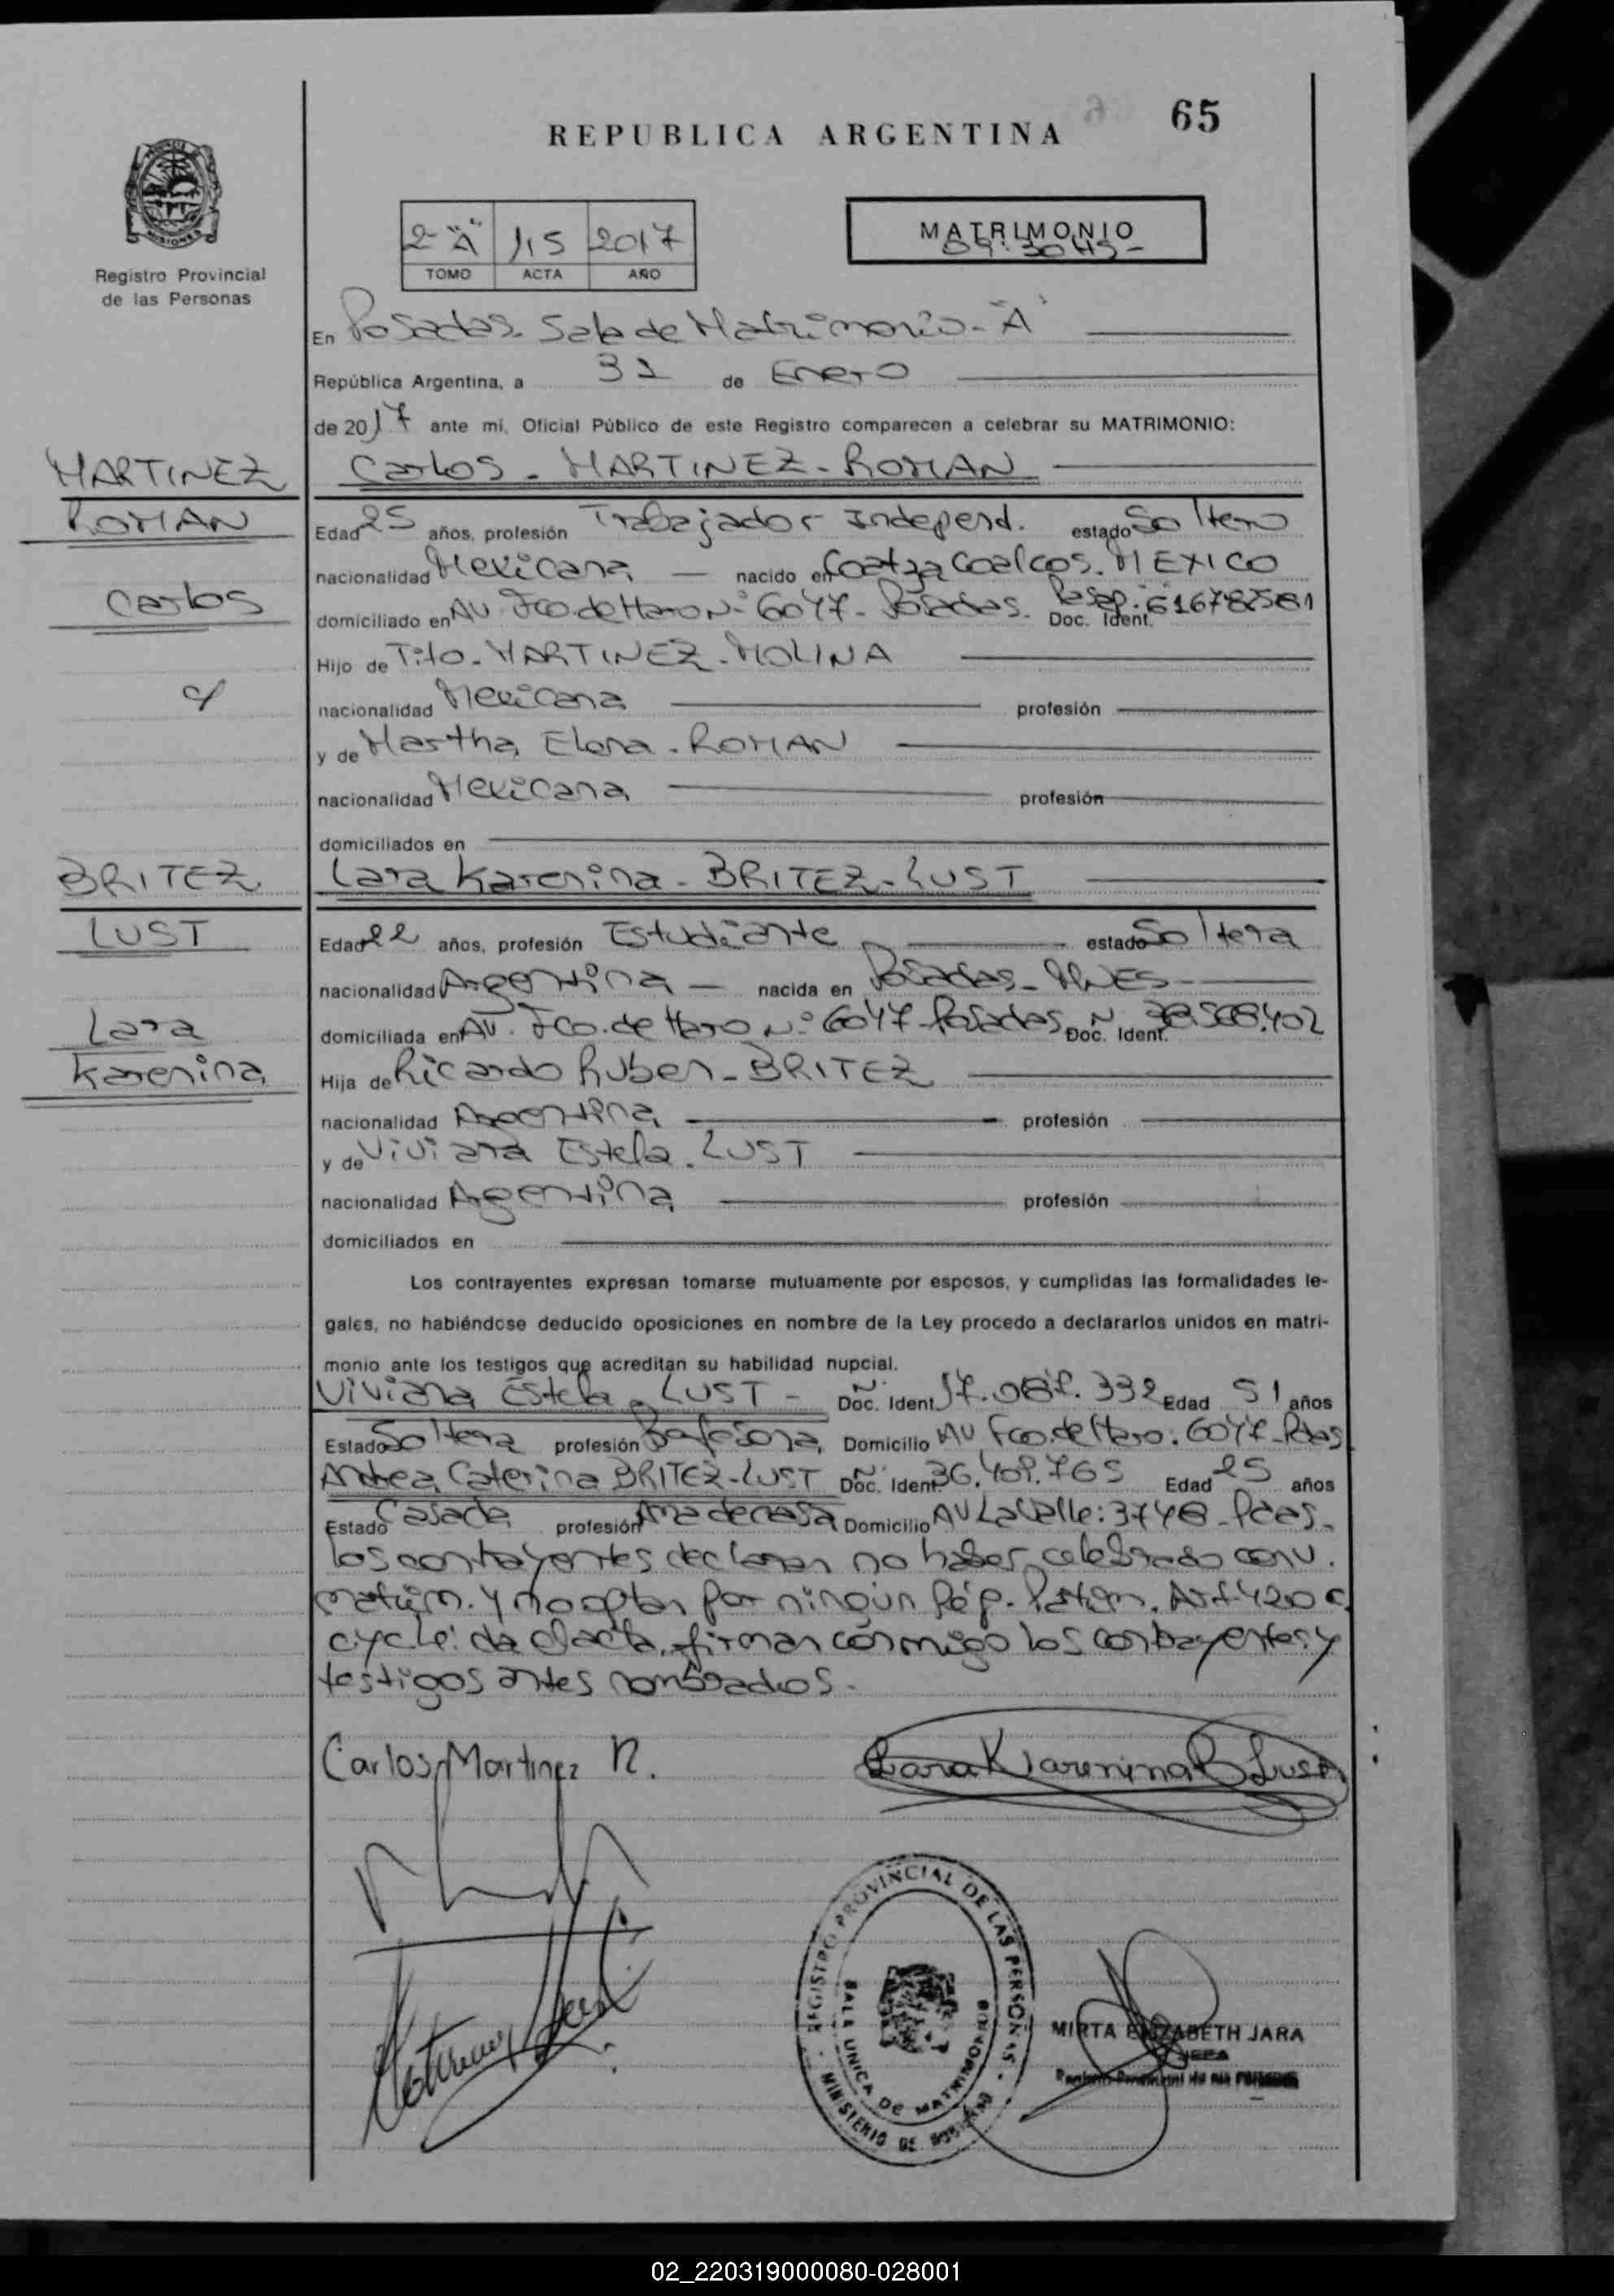 REPUBLICA ARGENTINA
65
Registro Provincial
de las Personas
2 "A" 115 2017
TOMO ACTA AÑO
MATRIMONIO
09:30 HS-
En Posadas. Sala de Matrimonio - "A"
República Argentina, a 31 de Enero
de 2017 ante mí, Oficial Público de este Registro comparecen a celebrar su MATRIMONIO:
MARTINEZ
ROMAN
Carlos
c/
Carlos - MARTINEZ - ROMAN
Edad 25 años, profesión Trabajador Independ. estado Soltero
nacionalidad Mexicana — nacido en Coatzacoalcos. MEXICO
domiciliado en AV Fco. de Haro Nº 6047 - Posadas. Doc. Ident. Pasap: G16782581
Hijo de Tito - MARTINEZ - MOLINA
nacionalidad Mexicana profesión
y de Martha Elena - ROMAN
nacionalidad Mexicana profesión
domiciliados en
BRITEZ
LUST
Lara
Karenina
Lara Karenina - BRITEZ - LUST
Edad 22 años, profesión Estudiante estado Soltera
nacionalidad Argentina — nacida en Posadas - MNES -
domiciliada en AV. Fco. de Haro Nº 6047 Posadas Doc. Ident. Nº 38.568.402
Hija de Ricardo Ruben - BRITEZ
nacionalidad Argentina profesión
y de Viviana Estela. LUST
nacionalidad Argentina profesión
domiciliados en
Los contrayentes expresan tomarse mutuamente por esposos, y cumplidas las formalidades le-
gales, no habiéndose deducido oposiciones en nombre de la Ley procedo a declararlos unidos en matri-
monio ante los testigos que acreditan su habilidad nupcial.
Viviana Estela - LUST - Doc. Ident. Nº 17.087.332 Edad 51 años
Estado Soltera profesión Profesora Domicilio AV Fco. de Haro: 6047 - Pdas
Andrea Caterina BRITEZ - LUST Doc. Ident. Nº 36.409.765 Edad 25 años
Estado Casada profesión Ama de casa Domicilio AV Lavalle: 3748 - Pdas -
los contrayentes declaran no haber celebrado conv.
matrim. y no optan por ningún Rég. Patrim. Art 420
cyc leída el acta, firman conmigo los contrayentes y
testigos antes nombrados -
Carlos Martinez R.
Lara Karenina B Lust
REGISTRO PROVINCIAL DE LAS PERSONAS
SALA UNICA DE MATRIMONIOS
MINISTERIO DE GOBIERNO
MIRTA ELIZABETH JARA
JEFA
Registro Provincial de las Personas
02_220319000080-028001